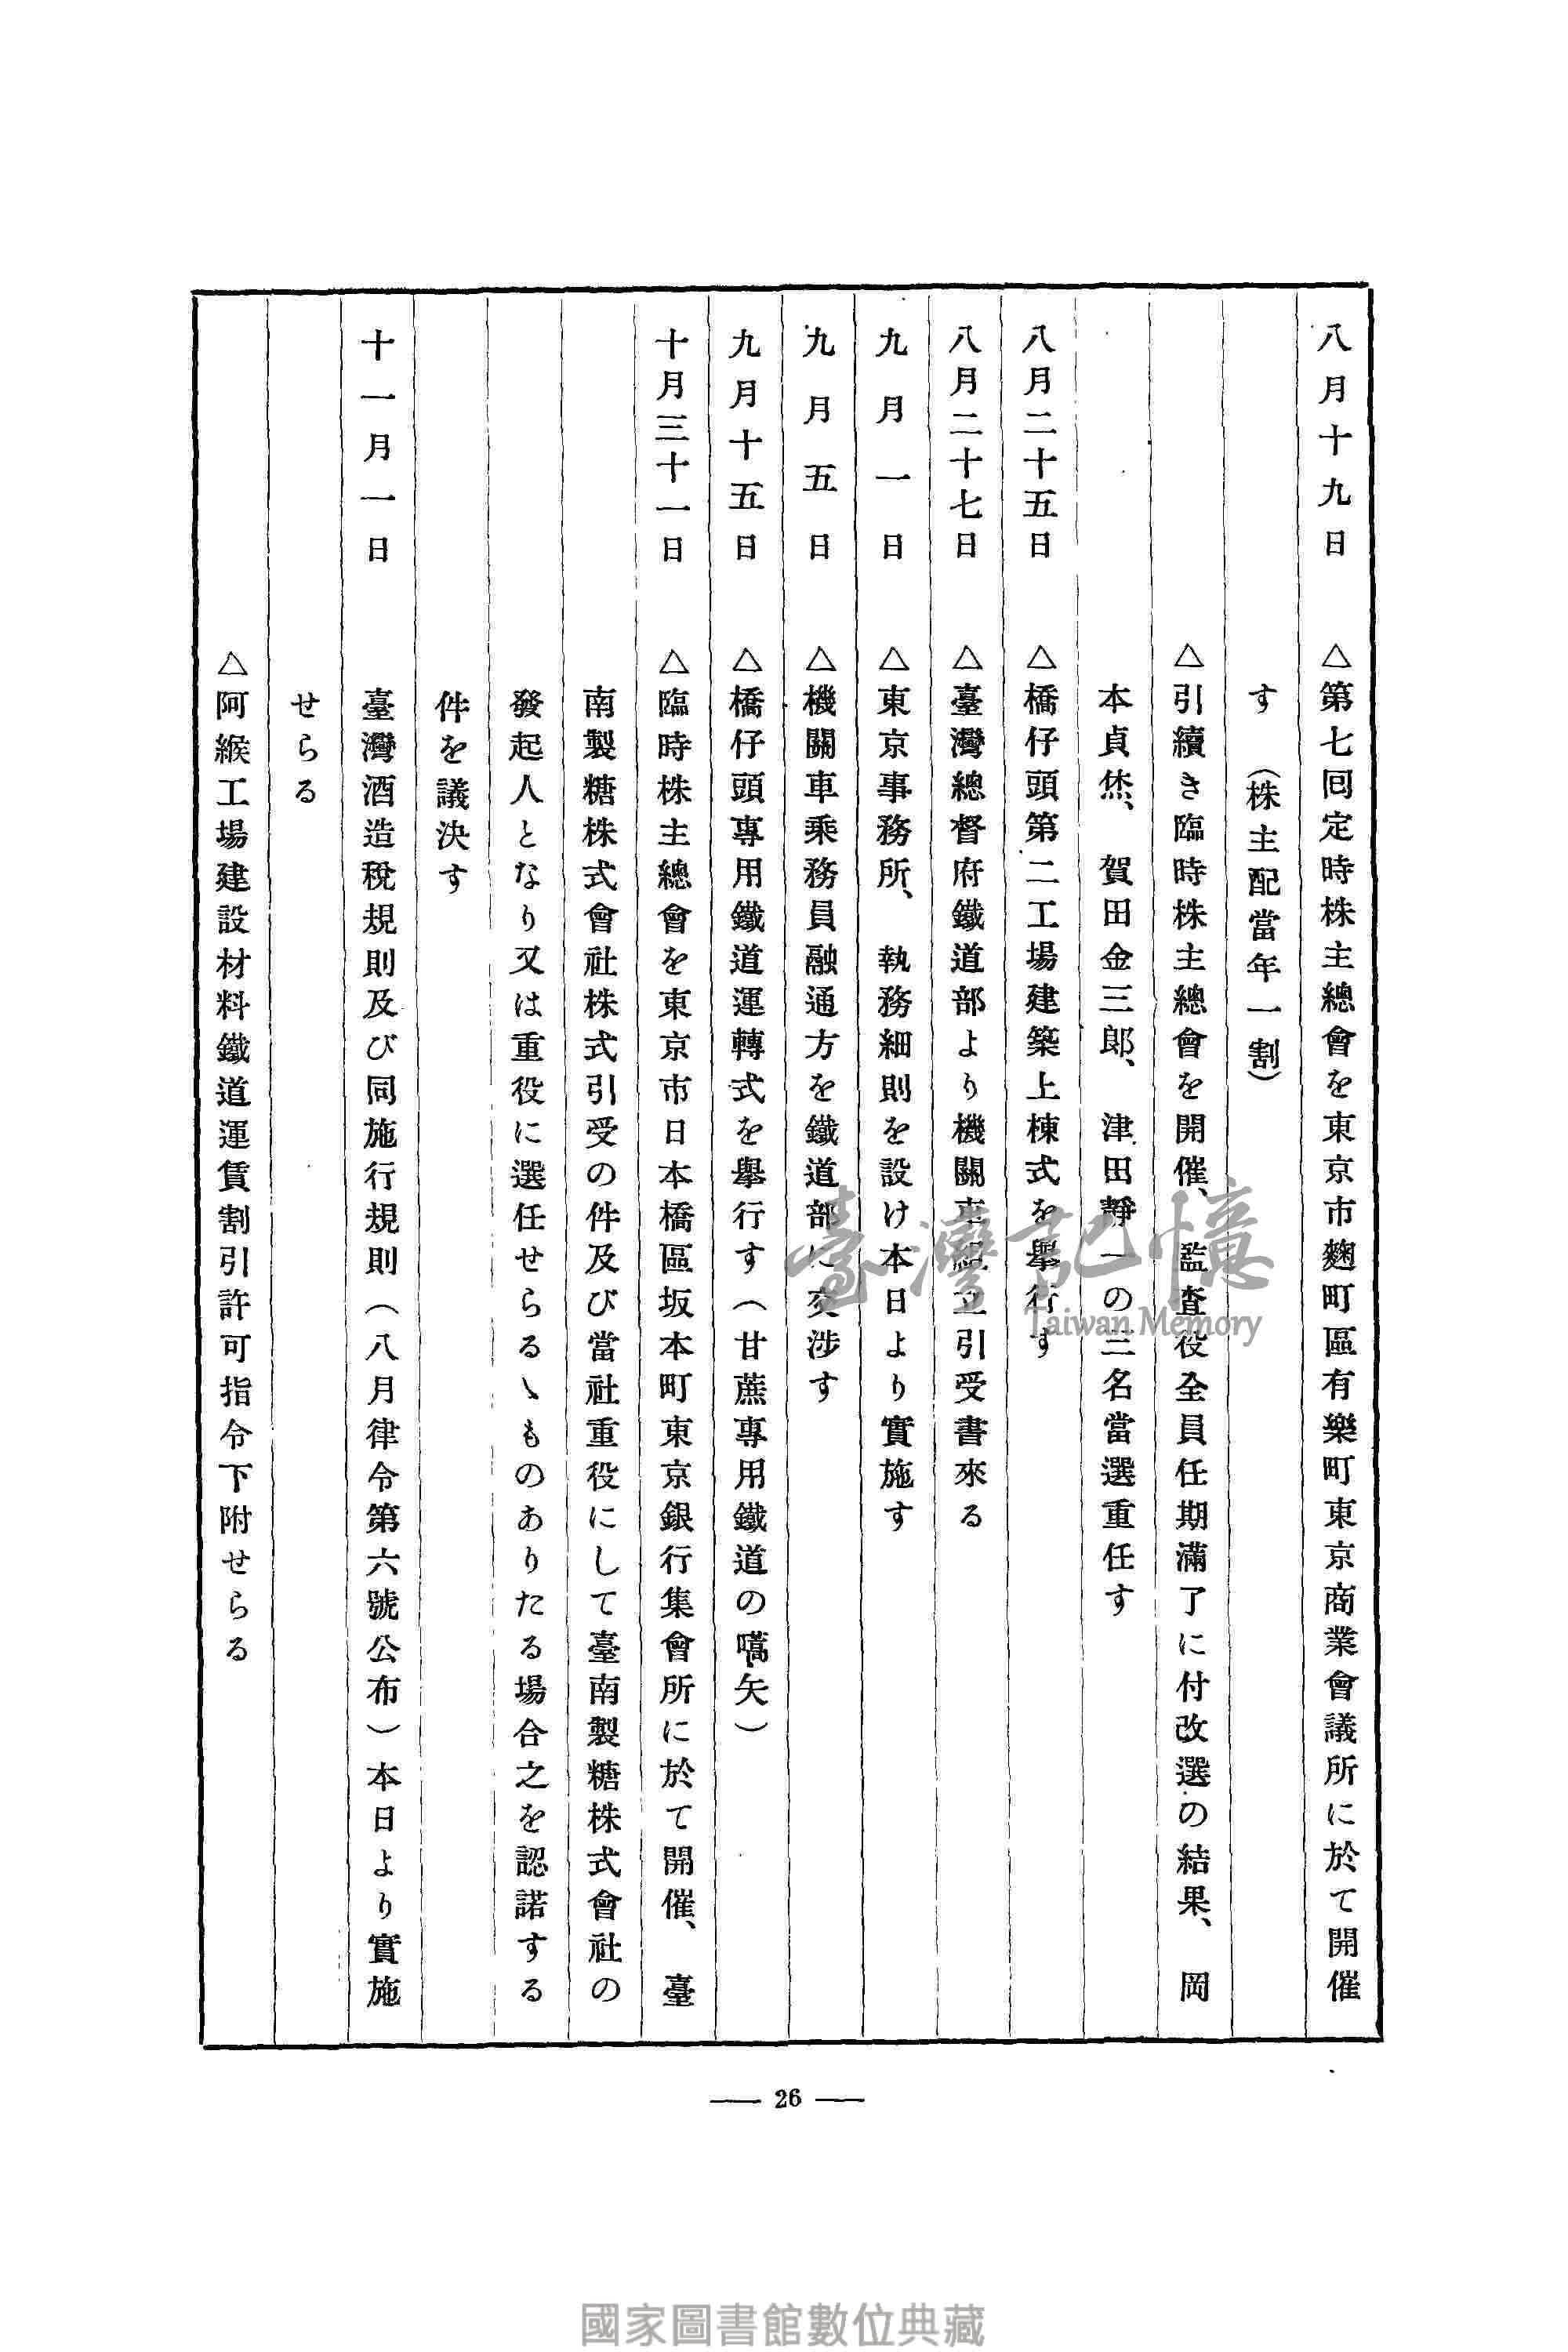 八月十九日　△第七回定時株主總會を東京市麹町區有樂町東京商業會議所に於て開催
す　(株主配當年一割)
△引續き臨時株主總會を開催、監査役全員任期滿了に付改選の結果、岡
本貞烋、賀田金三郎、津田靜一の三名當選重任す
八月二十五日　△橋仔頭第二工場建築上棟式を擧行す
八月二十七日　△臺灣總督府鐵道部より機關車組立引受書來る
九月一日　△東京事務所、執務細則を設け本日より實施す
九月五日　△機關車乘務員融通方を鐵道部に交渉す
九月十五日　△橋仔頭專用鐵道運轉式を擧行す(甘蔗專用鐵道の嚆矢)
十月三十一日　△臨時株主總會を東京市日本橋區坂本町東京銀行集會所に於て開催、臺
南製糖株式會社株式引受の件及び當社重役にして臺南製糖株式會社の
發起人となり又は重役に選任せらるゝものありたる場合之を認諾する
件を議決す
十一月一日　臺灣酒造稅規則及び同施行規則(八月律令第六號公布)本日より實施
せらる
△阿緱工場建設材料鐵道運賃割引許可指令下附せらる
— 26 —
臺灣記憶
Taiwan Memory
國家圖書館數位典藏